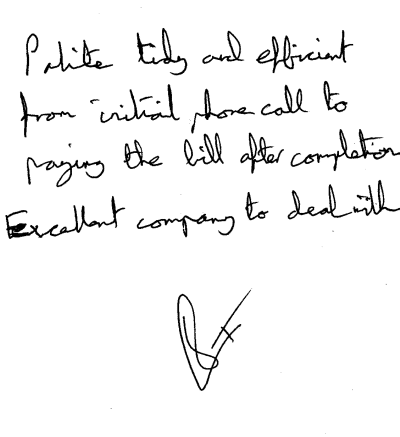 Polite tidy and efficient
from initial phone call to
paying the bill after completion
Excellent company to deal with